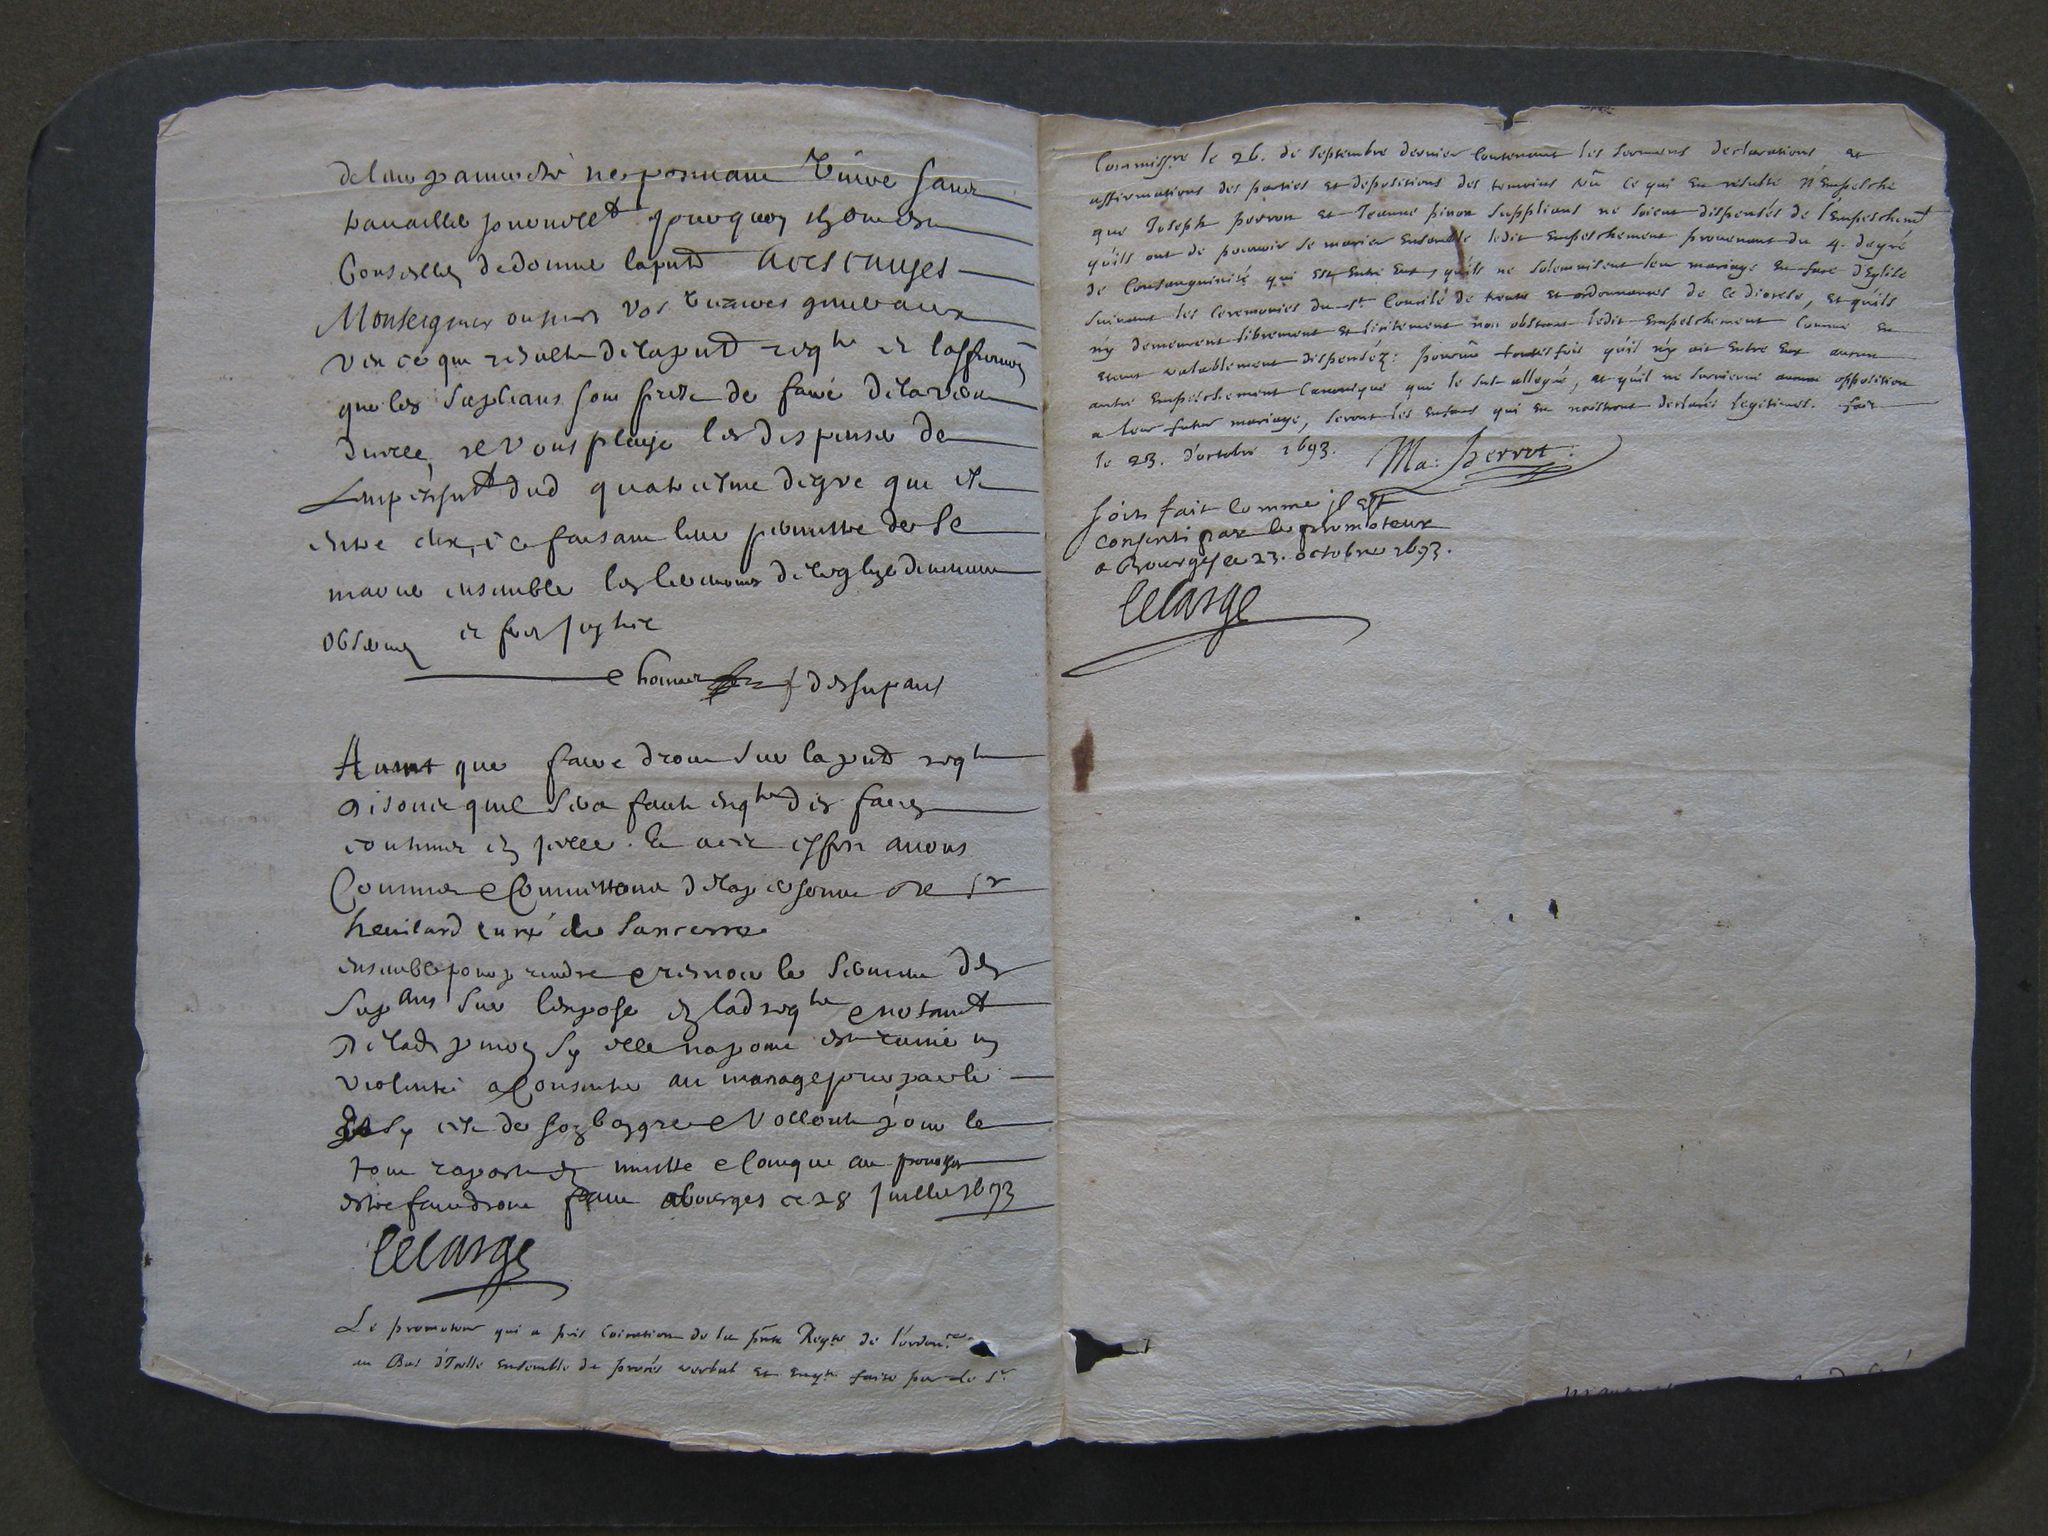 de leur pauvreté ne pouvant vivre sans
travailler pourquoy ils ont esté
conseillez de donner la pntt
Monseigneur ou mrs vos vicaires generaux
veu ce que resulte de la pntt reqte et
que les suplians sont prets de faire de la verité
dicelle, il vous plaise les dispenser de
dud quatriesme degre qui est
entre eux, & ce faisant leur permettre de se
marier ensemble les ceremonies de leglise
observées et ferez justice
des supans
Avant que faire droit sur la pntt reqte
disons quil sera faite enqte des faits
contenus en icelle. Et a cet effet avons
commis & commettons de la personne de sr
heuilard curé de Sancerre
ensemble pour prendre & recevoir le serment des
supans sur lexposé en lad reqte & notamt
de lad pinon sy elle na point esté ravie ny
violentée a consentir au mariage pour parlé
et sy est de son bon gre & volonté pour le
tout raporté & communiqué au promoteur
estre fait droit fait a bourges ce 28 juillet 1693
Lelarge
Le promoteur qui a pris coication de la pnte Reqte de l'ordon.ce
au Bas d'Icelle Ensemble du procés verbal et enqte faite par le Sr.
Commissre le 26. de septembre dernier Contenant les sermens declarations et
affirmations des parties et depositions des temoins vû ce qui en resulte N'Empesche
que Joseph perron et Jeanne pinon supplians ne soient dispensés de l'Empeschemt
qu'ils ont de pouvoir se marier Ensemble ledit Empeschement provenant du 4. degré
de Consanguinité qui est Entre Eux, qu'ils ne solemnisent leur mariage En face d'Eglise
suivant les ceremonies du st Concile de trente et ordonnances de ce diocese, et qu'ils
n'y demeurent librement et licitement non obstant ledit Empeschement Comme en
etant valablement dispenséz: pourvû toutesfois qu'il n'y ait Entre Eux aucun
autre Empeschement Canonique que le sus allegué, et qu'il ne survienne aucune opposition
a leur futur mariage, seront les Enfans qui en naistront declarés legitimes. fait
le 23. d'octobre 1693. Ma: perrot.
Soit fait comme il est
consenti par le promoteur
a Bourges ce 23. octobre 1693.
Lelarge